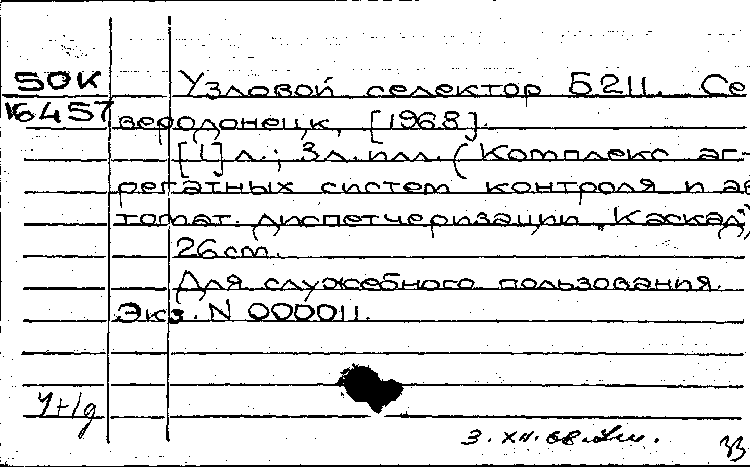 50К
16457
Узловой селектор Б211. Се
веродонецк, [1968].
[1] л.; 3 л. илл. (Комплекс аг-
регатных систем контроля и ав
томат. диспетчеризации „Каскад")
26 cm.
Для служебного пользования.
Экз. N 000011.
3. XII. 68.
33